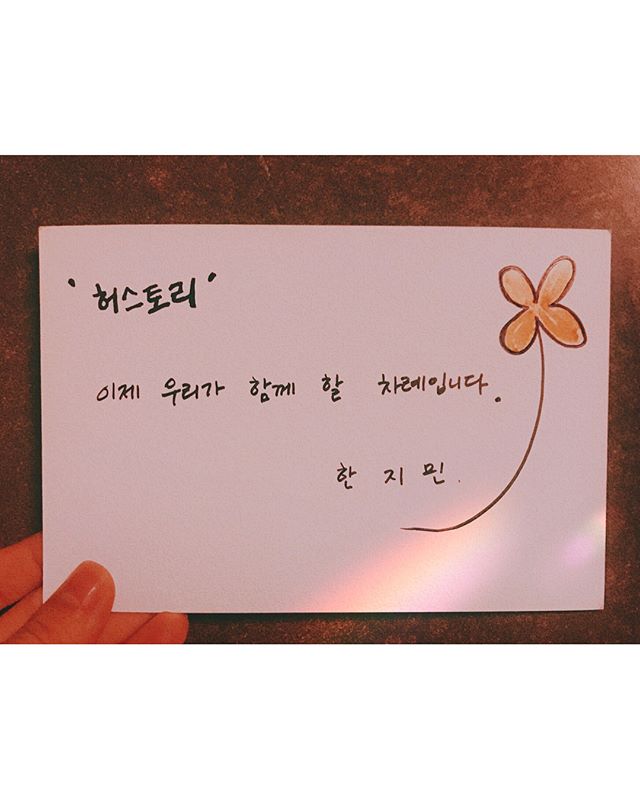 '허스토리'
이제 우리가 함께 할 차례입니다.
한 지 민.